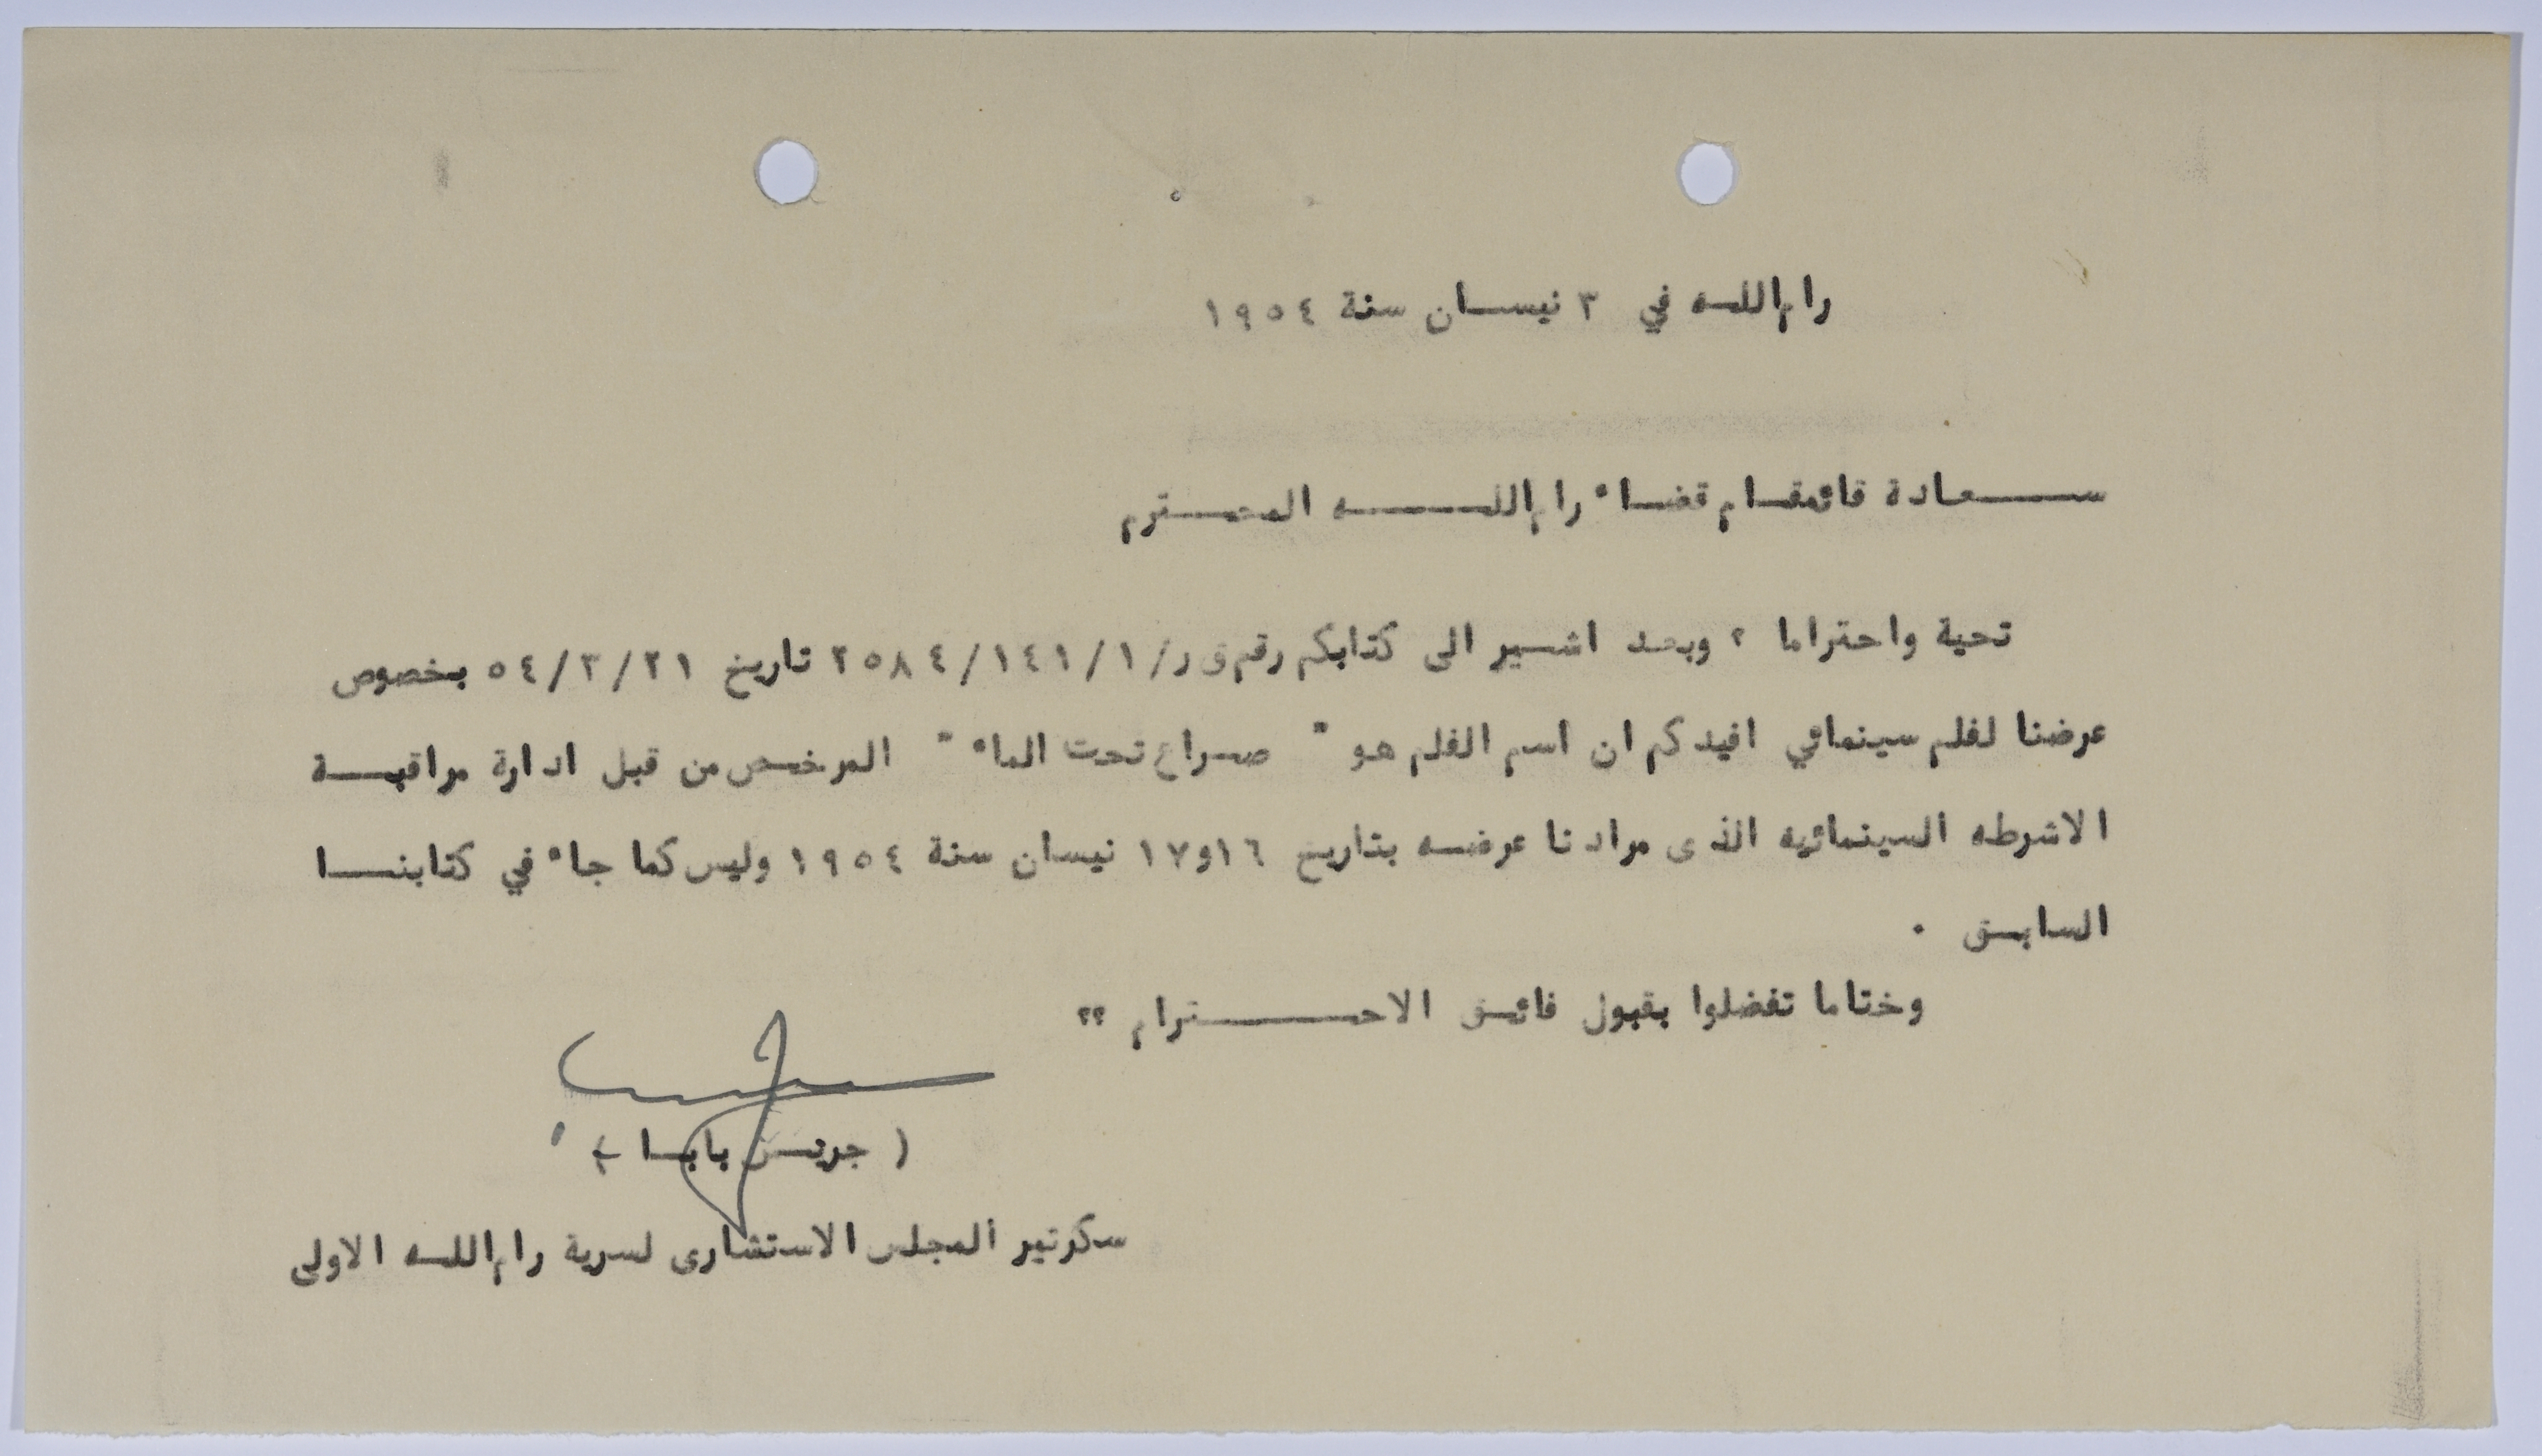 رام الله في ٣ نيسان سنة ١٩٥٤
سعادة قائمقام قضاء رام الله المحترم
تحية واحتراما ؟ وبعد اشير الى كتابكم رقم ق ر/١/١٤١/٢٥٨٤ تاريخ ٥٤/٣/٢١ بخصوص
عرضنا لفلم سينمائي افيدكم ان اسم الفلم هو " صراع تحت الماء " المرخص من قبل ادارة مراقبة
الاشرطه السينمائيه الذى مرادنا عرضه بتاريخ ١٦و١٧ نيسان سنة ١٩٥٤ وليس كما جاء في كتابنا
السابق .
وختاما تفضلوا بقبول فائق الاحترام ؟؟
( جريس بابا )
سكرتير المجلس الاستشارى لسرية رام الله الاولى